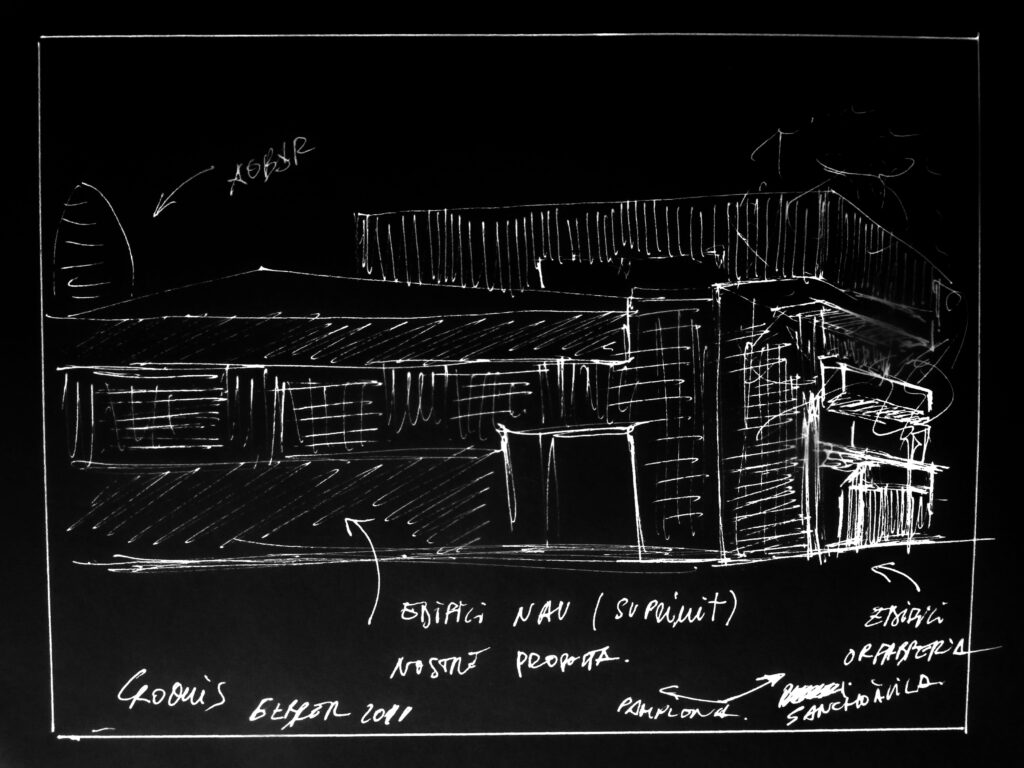 AGBAR
EDIFICI NAU (SUPRIMIT)
NOSTRE PROPOSTA.
EDIFICI
ORFEBRERIA
CROQUIS FEBRER 2011
PAMPLONA.
SANCHO ÀVILA.